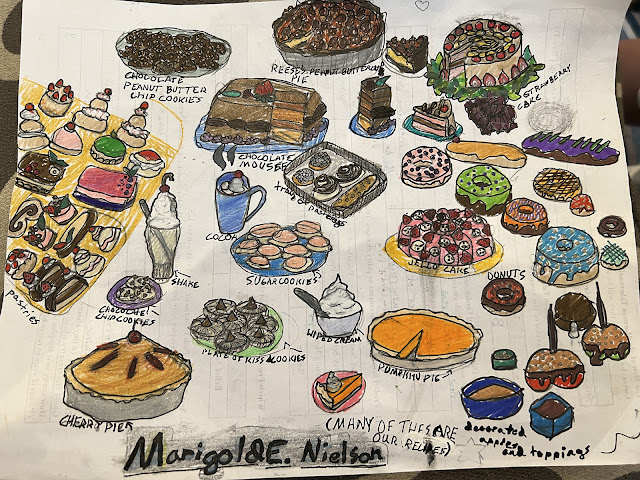 CHOCOLATE
PEANUT BUTTER
CHIP COOKIES
REESE'S PEANUT BUTTERCUP
PIE
STRAWBERRY
CAKE
CHOCOLATE
MOUSE
tray of pastries
COCOA
SHAKE
SUGAR COOKIES
JELLO CAKE
DONUTS
pastries
CHOCOLATE
CHIP COOKIES
PLATE OF KISS COOKIES
WIPED CREAM
PUMPKIN PIE
CHERRY PIE
(MANY OF THES ARE
OUR RECIPES)
decorated
apples
and toppings
Marigold E. Nielson